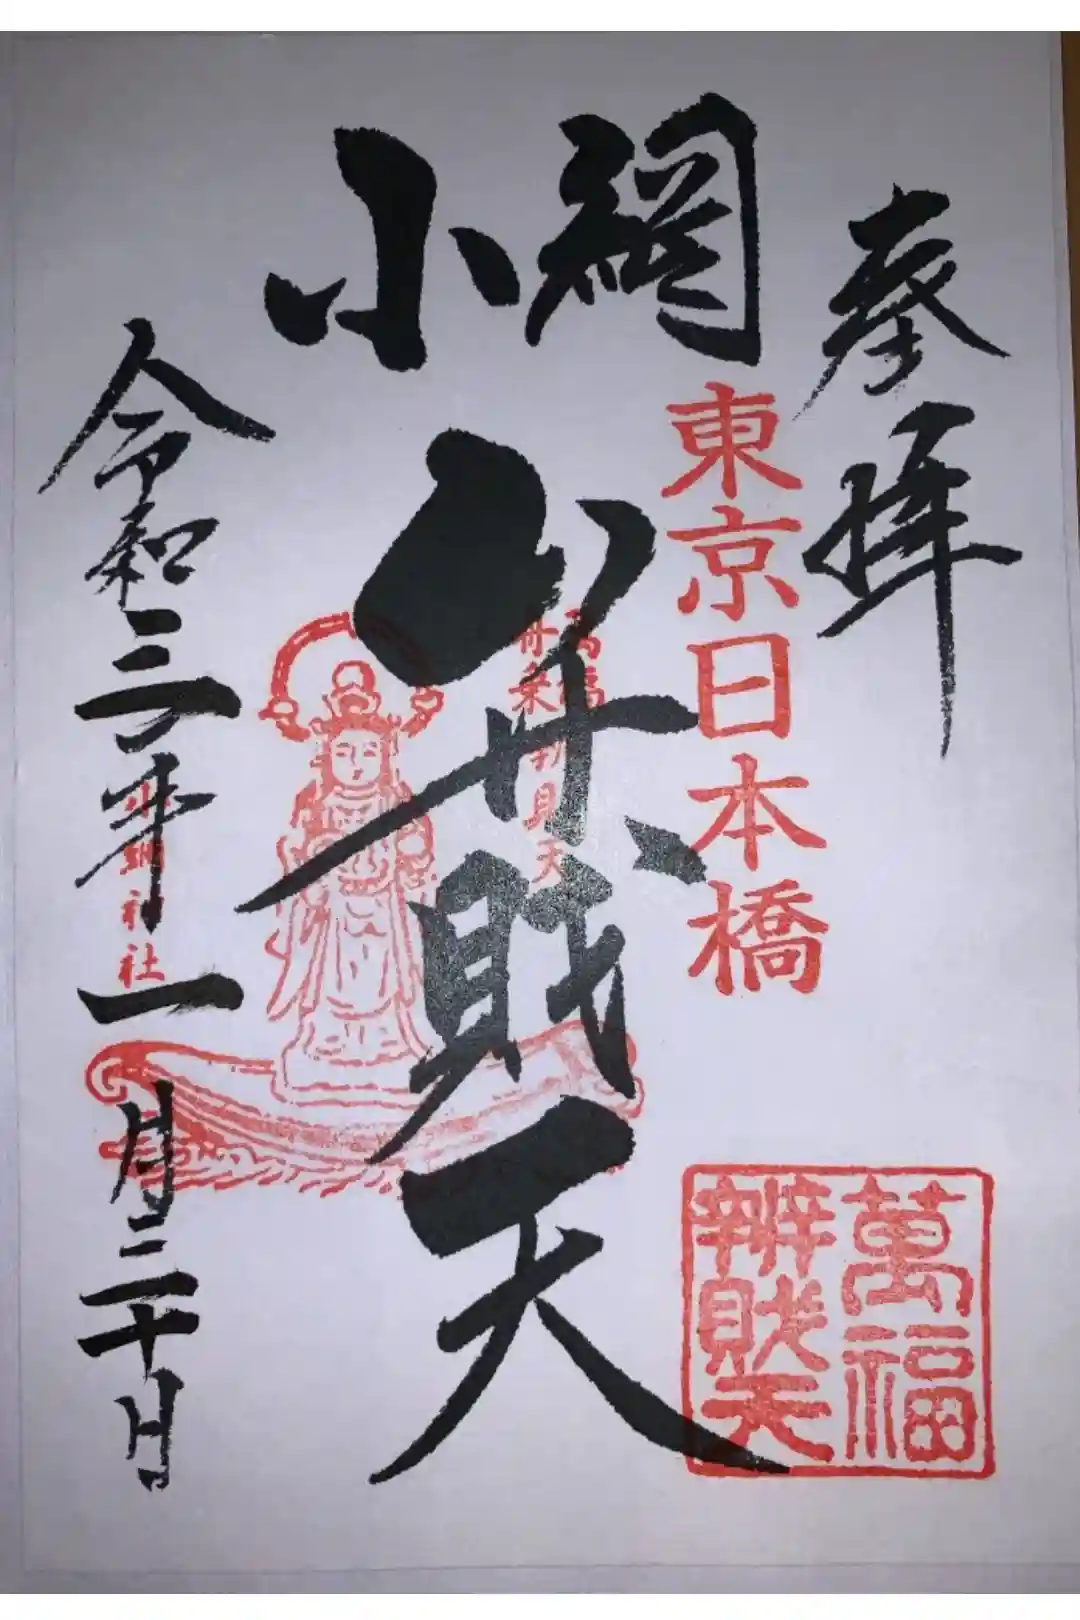 奉拝
東京日本橋
萬福
辨財天
小網
弁財天
萬福
舟乗弁財天
令和三年一月二十日
小網神社